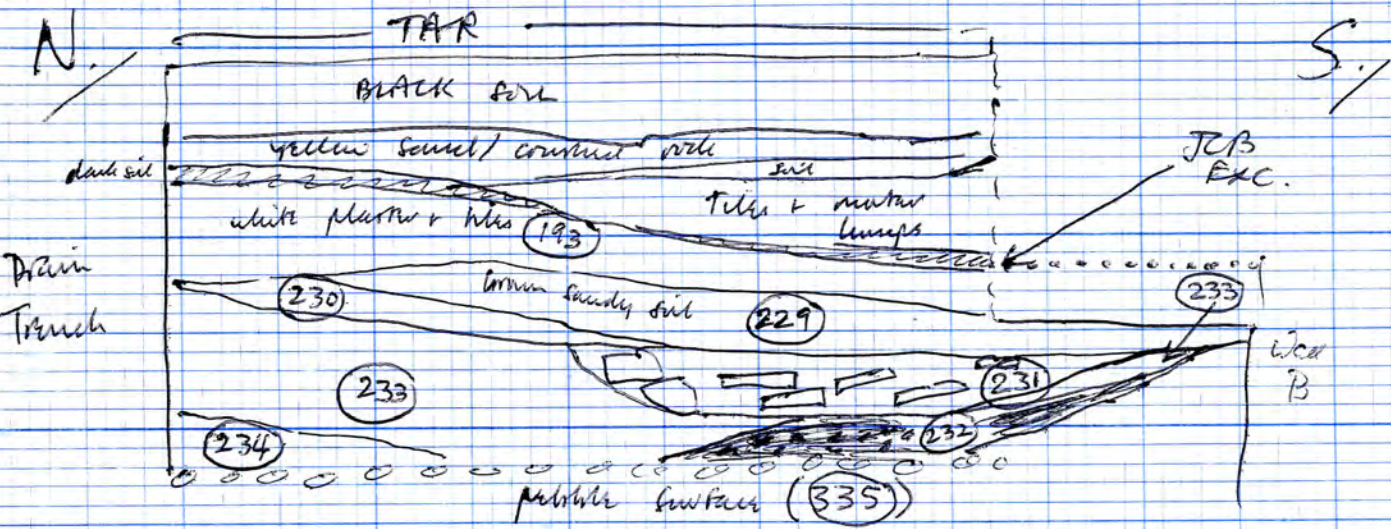 N. TAR S.
BLACK soil
yellow sand / crushed rock
dark soil
soil
JCB
EXC.
white plaster + tiles 193
Tiles + mortar
lumps
Drain
Trench
230
brown sandy soil
229
233
Wall
B
233
231
234
232
pebble surface (335)